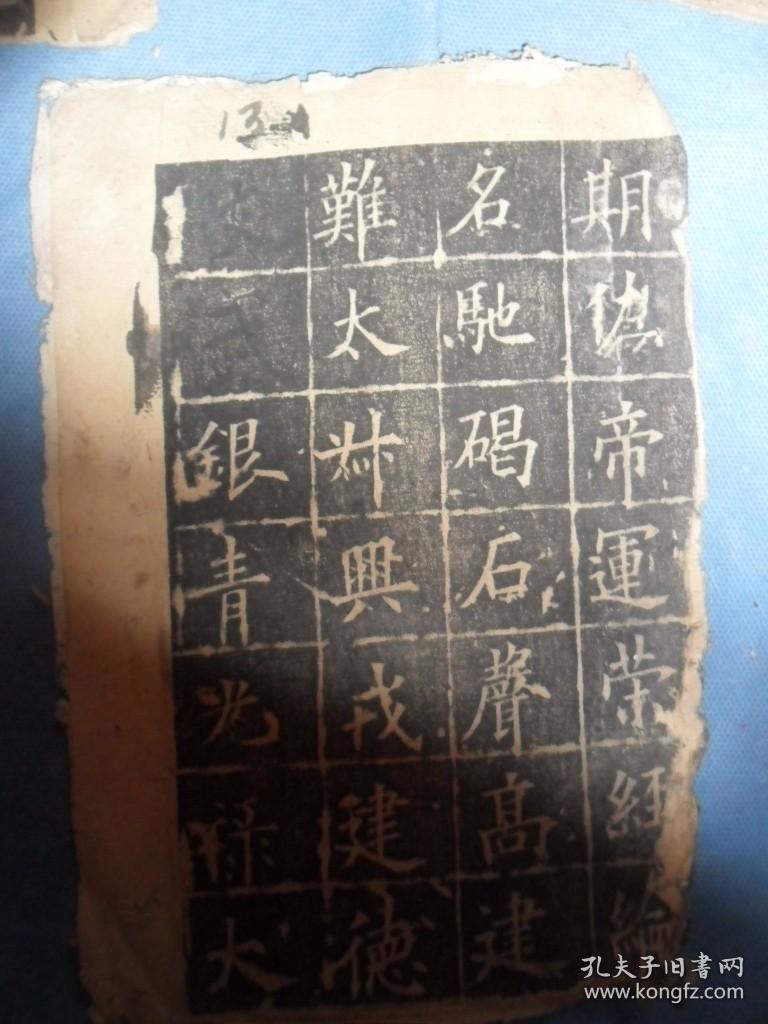 期佐帝運策經綸
名馳碣石聲高建
難太叔興戎建德
銀青光祿大
13
孔夫子旧書网
www.kongfz.com